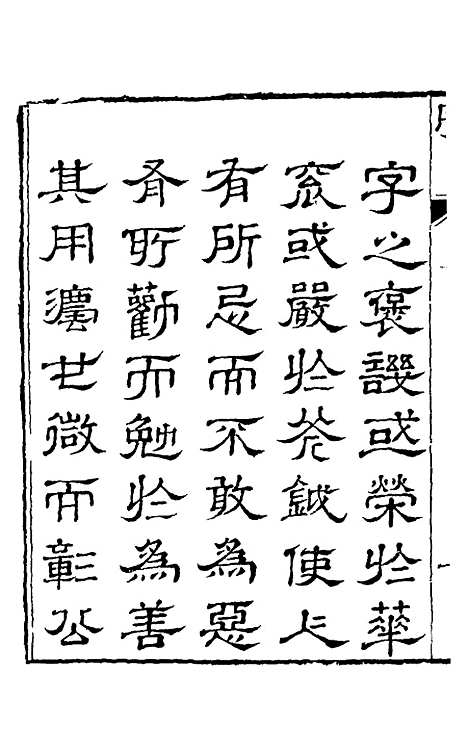 字之褒譏或榮於華
袞或嚴於斧鉞使人
有所忌而不敢為惡
有所勸而勉於為善
其用灋甚微而彰公